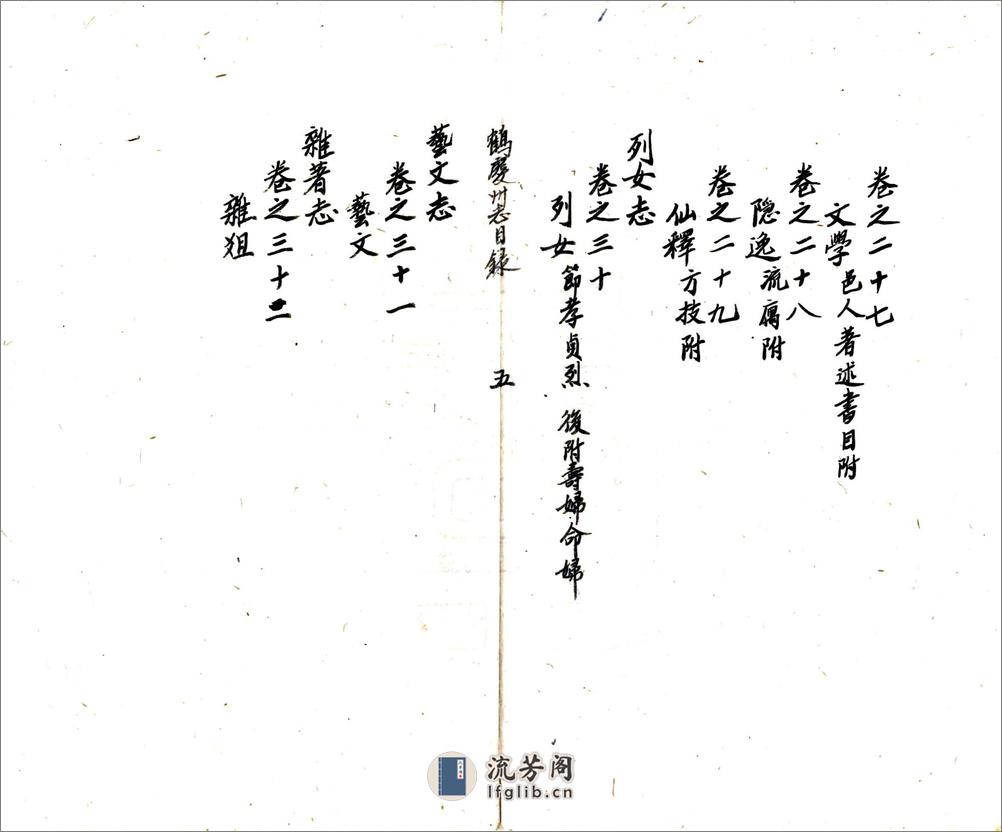 卷之二十七
文學邑人著述書目附
卷之二十八
隐逸流寓附
卷之二十九
仙釋方技附
列女志
卷之三十
列女節孝貞烈 後附壽婦命婦
鶴慶州志目錄 五
藝文志
卷之三十一
藝文
雜著志
卷之三十二
雜狙
流芳阁
lfglib.cn